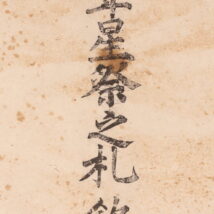 星祭之札